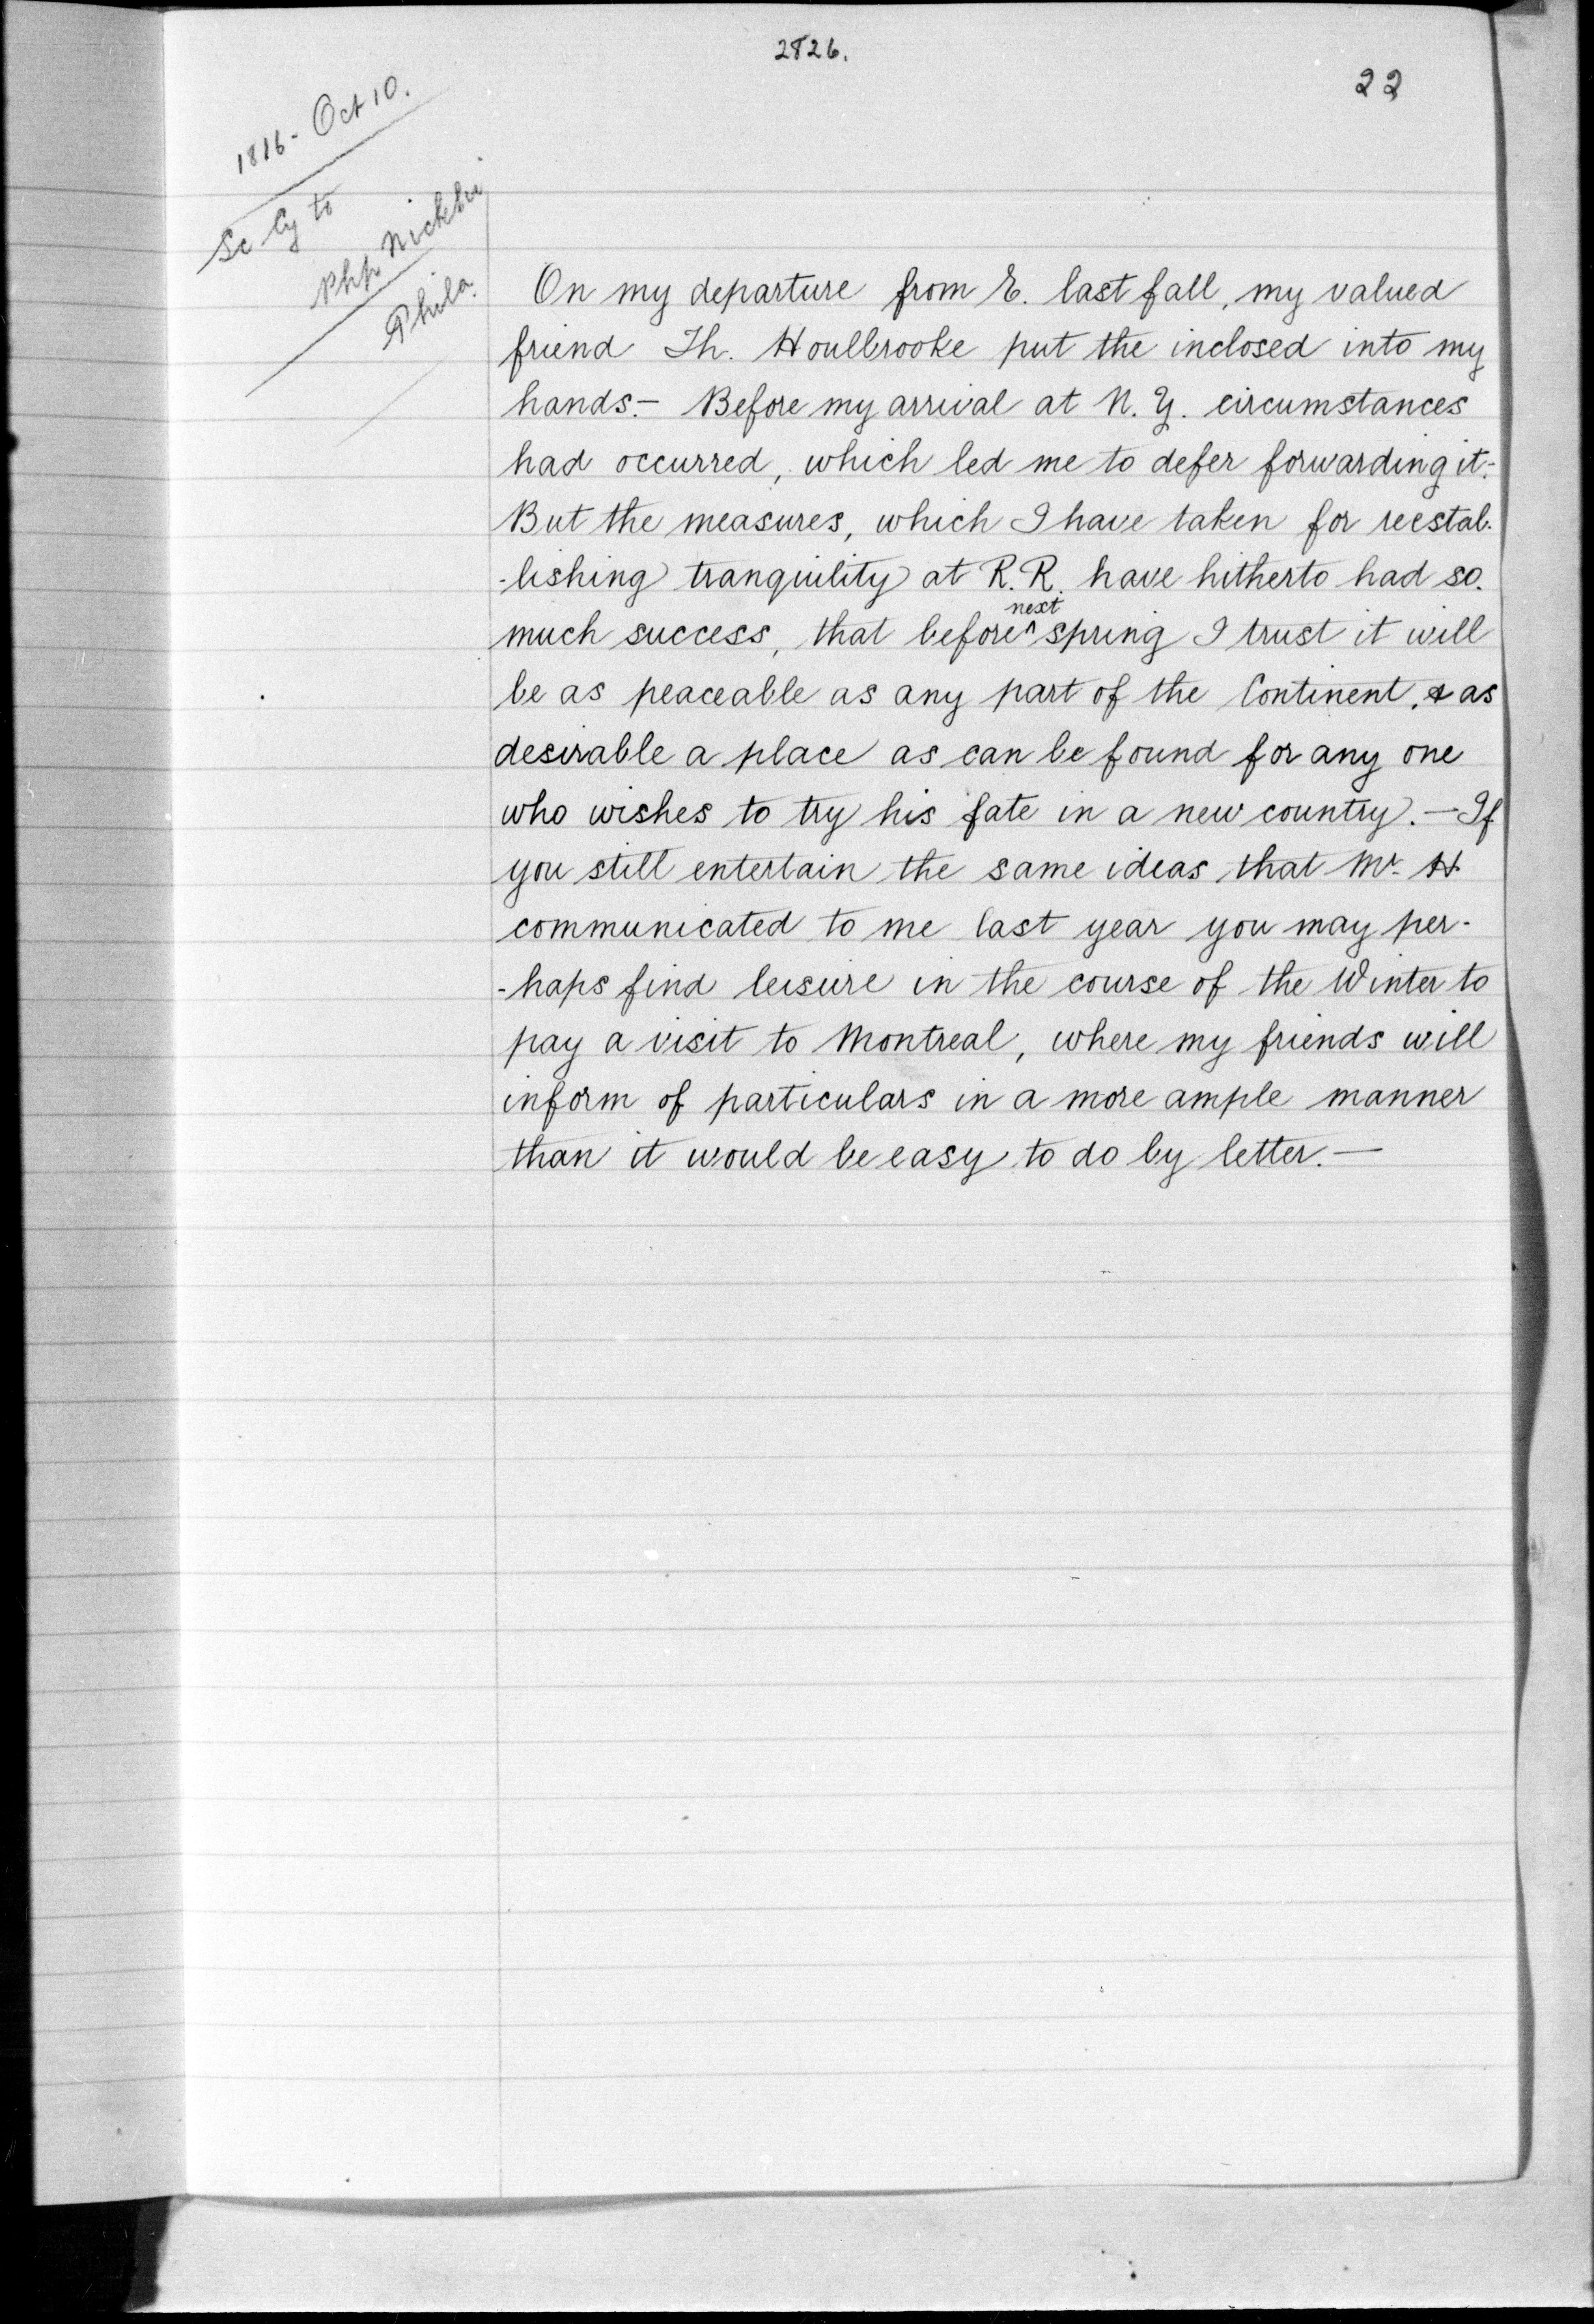 2826.
22
1816 - Oct 10.
Sc Cy to
Php Nicklin
Phila.
On my departure from E. last fall, my valued
friend Th. Houlbrooke put the inclosed into my
hands.- Before my arrival at N. Y. circumstances
had occurred, which led me to defer forwarding it.-
But the measures, which I have taken for reestab-
-lishing tranquility at R. R. have hitherto had so
much success, that before ^next spring I trust it will
be as peaceable as any part of the Continent, & as
desirable a place as can be found for any one
who wishes to try his fate in a new country. - If
you still entertain the same ideas that Mr. H
communicated to me last year you may per-
-haps find leisure in the course of the Winter to
pay a visit to Montreal, where my friends will
inform of particulars in a more ample manner
than it would be easy to do by letter. -